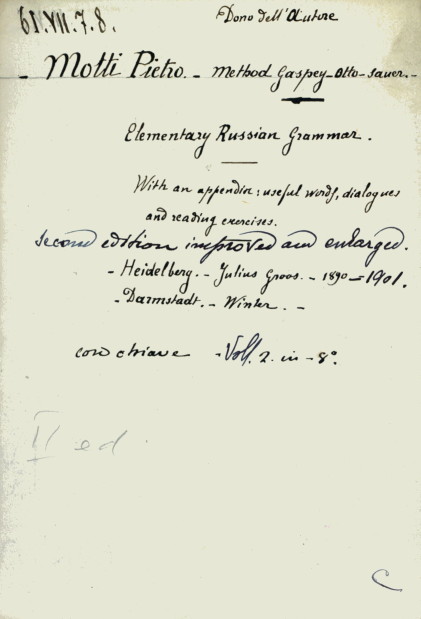 61.VII.7.8.
Dono dell'Autore
- Motti Pietro. - Method Gaspey-Otto-Sauer. -
Elementary Russian Grammar.
With an appendix: useful words, dialogues
and reading exercises.
second edition improved and enlarged.
- Heidelberg. - Julius Groos. - 1890 = 1901.
- Darmstadt. - Winter. -
con chiave - Voll. 2. in - 8°.
II ed.
C